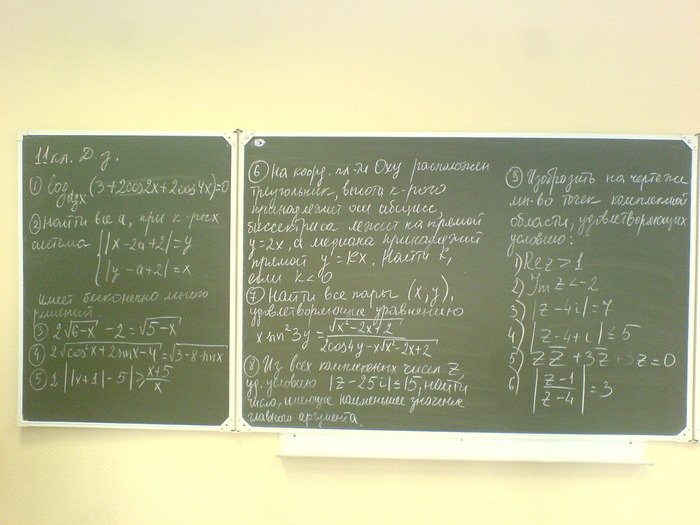 11кл. Д.з.
① log_ctgx (3+2cos2x+2cos4x)=0
② Найти все a, при к-рых
система { |x-2a+2|=y
|y-a+2|=x
имеет бесконечно много
решений.
③ 2√6-x - 2=√5-x
④ 2√cos²x+2sinx-4=√3-8sinx
⑤ 2||x+1|-5|≥ x+5/x
⑥ На коорд. пл-ти Oxy расположен
треугольник, высота к-рого
принадлежит оси абсцисс,
биссектриса лежит на прямой
y=2x, а медиана принадлежит
прямой y=kx. Найти k,
если k<0
⑦ Найти все пары (x,y),
удовлетворяющие уравнению
x sin²3y = √x²-2x+2 / 2cos4y-x√x²-2x+2
⑧ Из всех комплексных чисел z,
уд. условию |z-25i|≤15, найти
число, имеющее наименьшее значение
главного аргумента.
⑨ Изобразить на чертеже
мн-во точек комплексной
области, удовлетворяющих
условию:
1) Re z>1
2) Im z<-2
3) |z-4i|=7
4) |z-4+i|≤5
5) zz̄+3z+3z̄=0
6) |z-1/z-4|=3